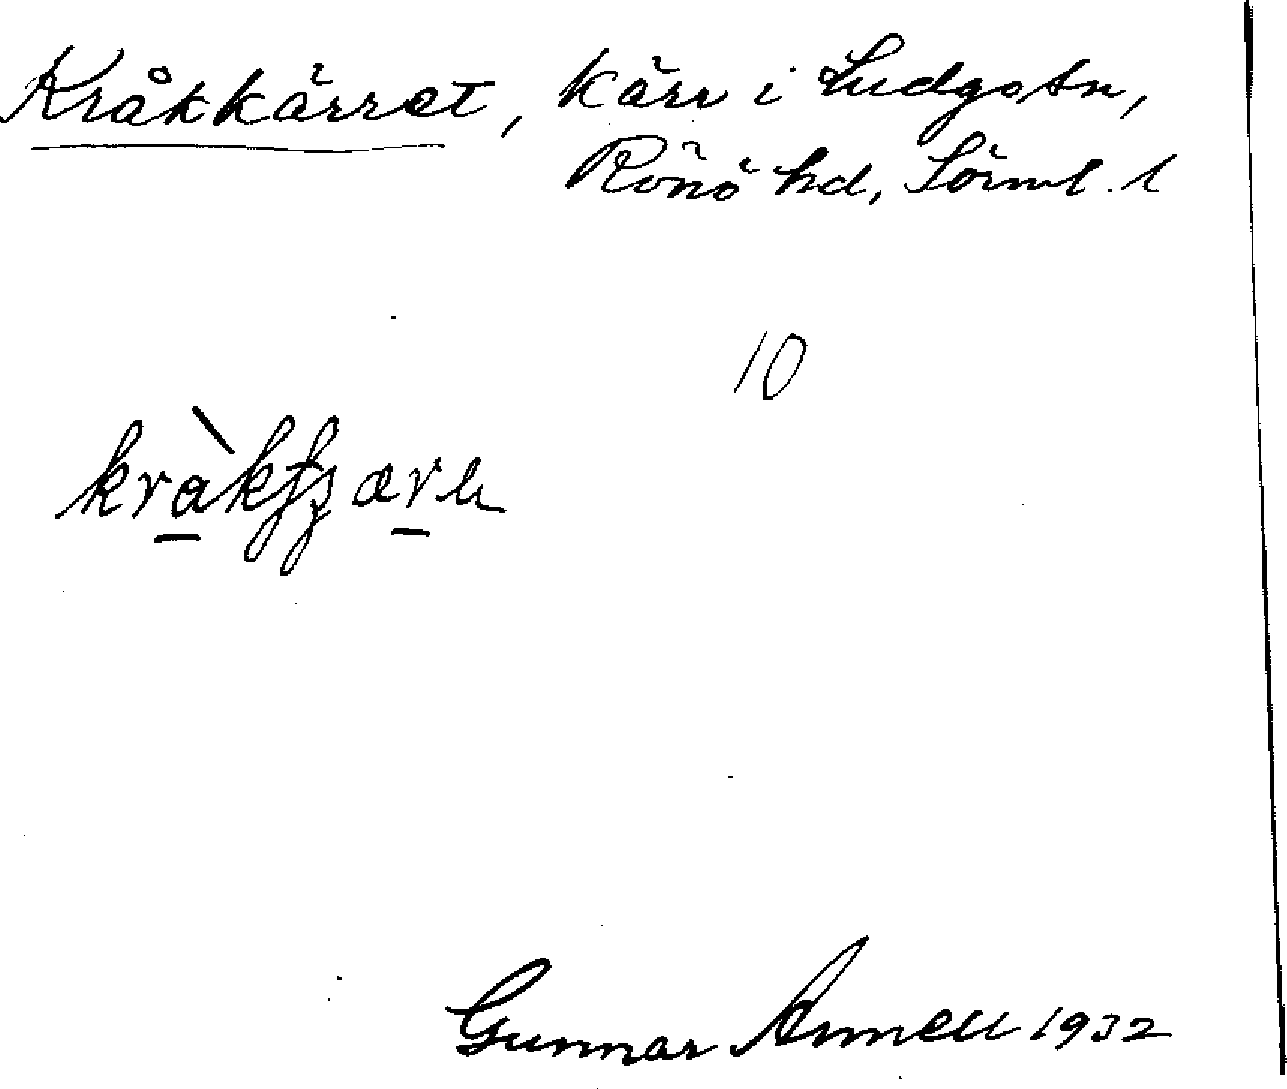 Kråkkärret, kärr i Ludgo sn,
Rönö hd, Sörml. l
10
Gunnar Annell 1932